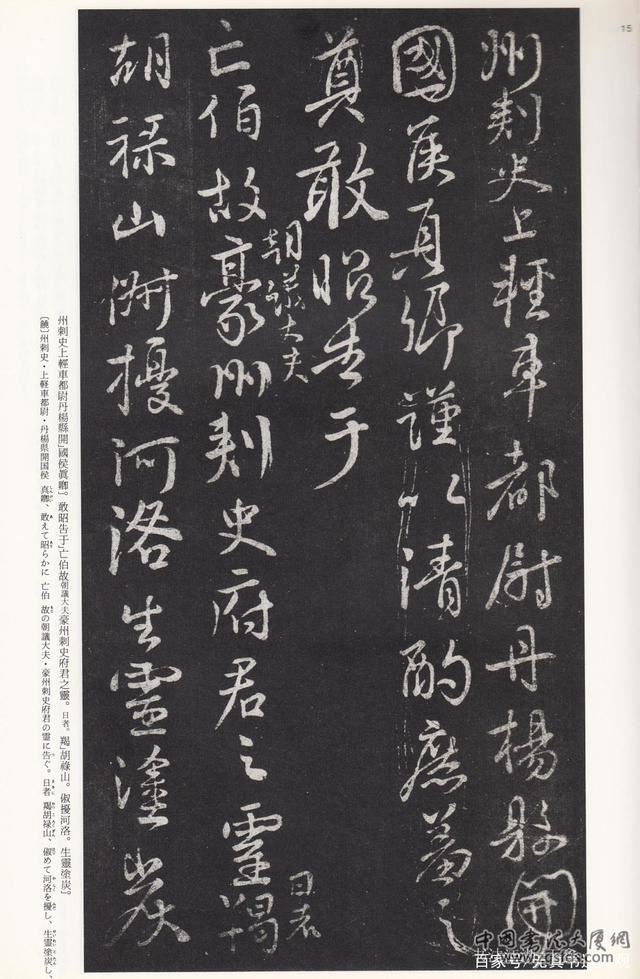 15
州刺史上輕車都尉丹楊縣開
國侯真卿謹以清酌庶羞之
奠敢昭告于
朝議大夫
亡伯故豪州刺史府君之靈羯
日者
胡祿山俶擾河洛生靈塗炭
州刺史上輕車都尉丹楊縣開」國侯眞卿〗。敢昭告于」亡伯故朝議大夫豪州刺史府君之靈。日者。羯」胡祿山。俶擾河洛。生靈塗炭〗。
〔饒〕州刺史・上軽車都尉・丹楊県開国侯 真卿、敢えて昭らかに 亡伯 故の朝議大夫・豪州刺史府君の霊に告ぐ。日者 羯胡禄山、俶めて河洛を擾し、生霊塗炭し、
中国书法大厦网
百家号/